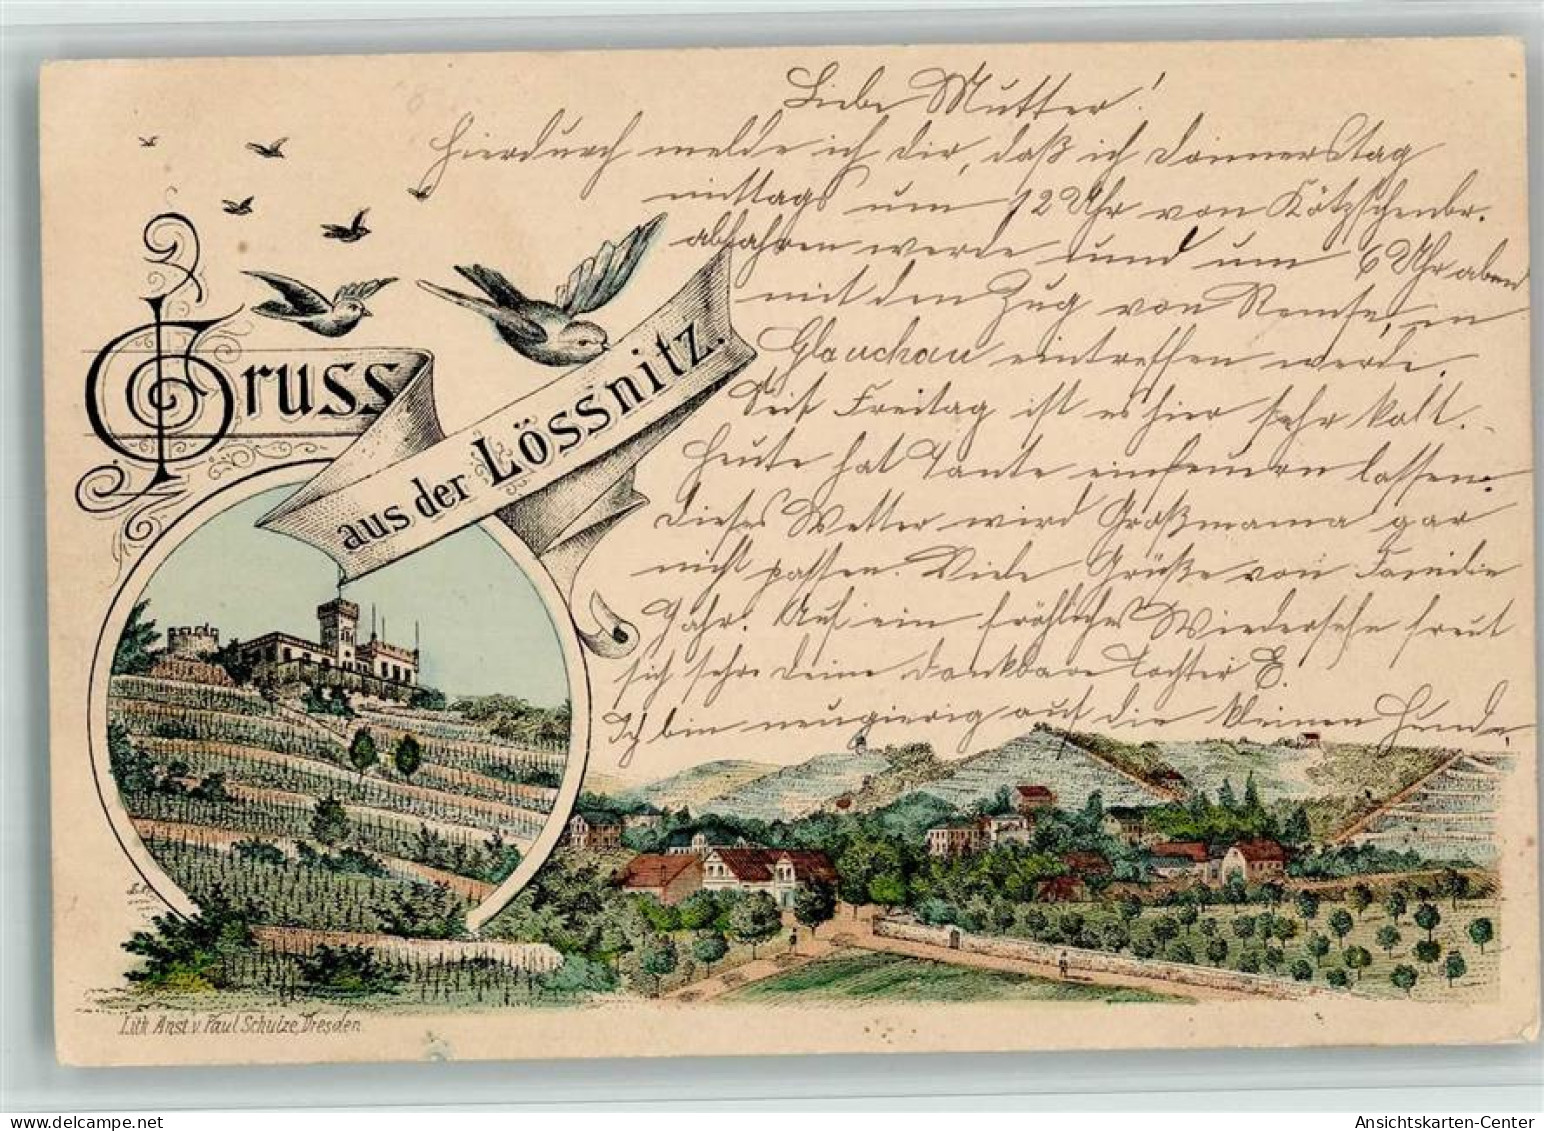 Liebe Mutter!
Hierdurch melde ich dir, daß ich Donnerstag
mittags um 12 Uhr von Kötzschenbr.
abfahren werde und um 6 Uhr abend
mit dem Zug von Remse, in
Glauchau eintreffen werde.
Seit Freitag ist es hier sehr kalt.
Heute hat Tante einfeuern lassen.
Dieses Wetter wird Großmama gar
nicht passen. Viele Grüße von Familie
Jahr. Auf ein fröhliches Wiedersehn freut
sich sehr deine dankbare Tochter E.
Ich bin neugierig auf die kleinen Hunde.
Gruss
aus der Lössnitz.
Lith. Anst. v. Paul Schulze, Dresden.
Ansichtskarten-Center
www.delcampe.net